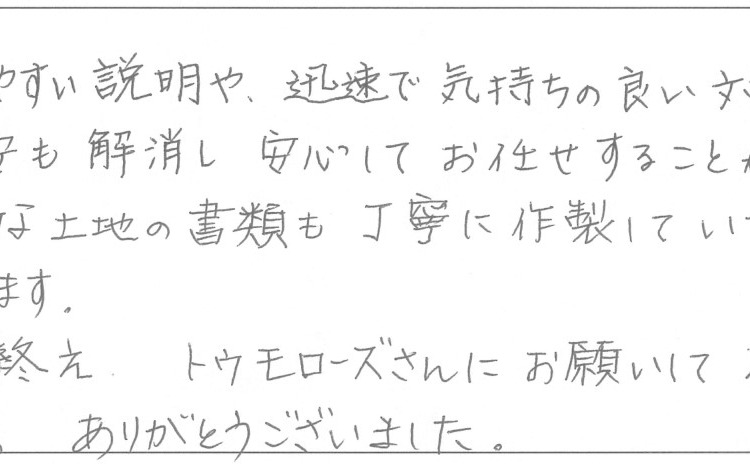 やすい説明や、迅速で気持ちの良い対
も解消し 安心してお任せすることが
な土地の書類も丁寧に作製してい
ます。
終え トゥモローズさんにお願いして
ありがとうございました。